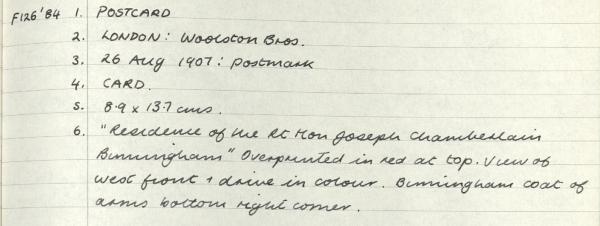 F126'84 1. POSTCARD
2. LONDON: Woolston Bros.
3. 26 Aug 1907: postmark
4. CARD.
5. 8.9 x 13.7 cms.
6. "Residence of the Rt Hon Joseph Chamberlain
Birmingham" Overprinted in red at top. View of
west front + drive in colour. Birmingham coat of
arms bottom right corner.